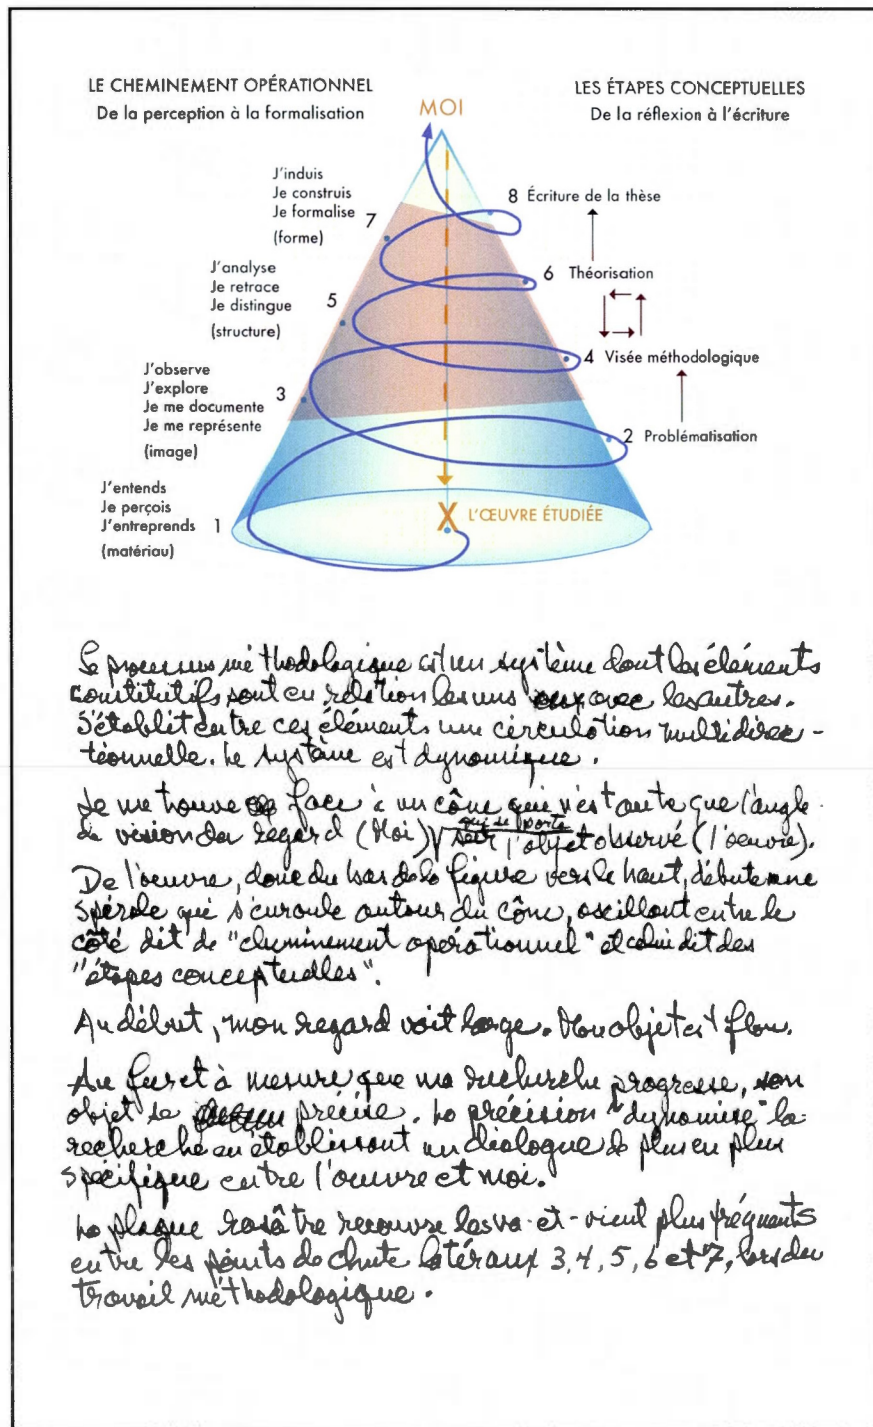 LE CHEMINEMENT OPÉRATIONNEL
De la perception à la formalisation
LES ÉTAPES CONCEPTUELLES
De la réflexion à l'écriture
MOI
J'induis
Je construis
Je formalise
(forme)
7
8 Écriture de la thèse
J'analyse
Je retrace
Je distingue
(structure)
5
6 Théorisation
J'observe
J'explore
Je me documente
Je me représente
(image)
3
4 Visée méthodologique
2 Problématisation
J'entends
Je perçois
J'entreprends
(matériau)
1
X L'ŒUVRE ÉTUDIÉE
Le processus méthodologique est un système dont les éléments
constitutifs sont en relation les uns avec les autres.
S'établit entre ces éléments une circulation multidirec-
tionnelle. Le système est dynamique.
Je me trouve face à un cône qui n'est autre que l'angle
de vision du regard (Moi) qui se porte sur l'objet observé (l'oeuvre).
De l'oeuvre, donc du bas de la figure vers le haut, débute une
spirale qui s'enroule autour du cône, oscillant entre le
côté dit de "cheminement opérationnel" et celui dit des
"étapes conceptuelles".
Au début, mon regard voit large. Mon objet est flou.
Au fur et à mesure que ma recherche progresse, son
objet se précise. La précision "dynamise" la
recherche en établissant un dialogue de plus en plus
spécifique entre l'oeuvre et moi.
La plaque rosâtre recouvre les va-et-vient plus fréquents
entre les points de chute latéraux 3, 4, 5, 6 et 7, lors du
travail méthodologique.